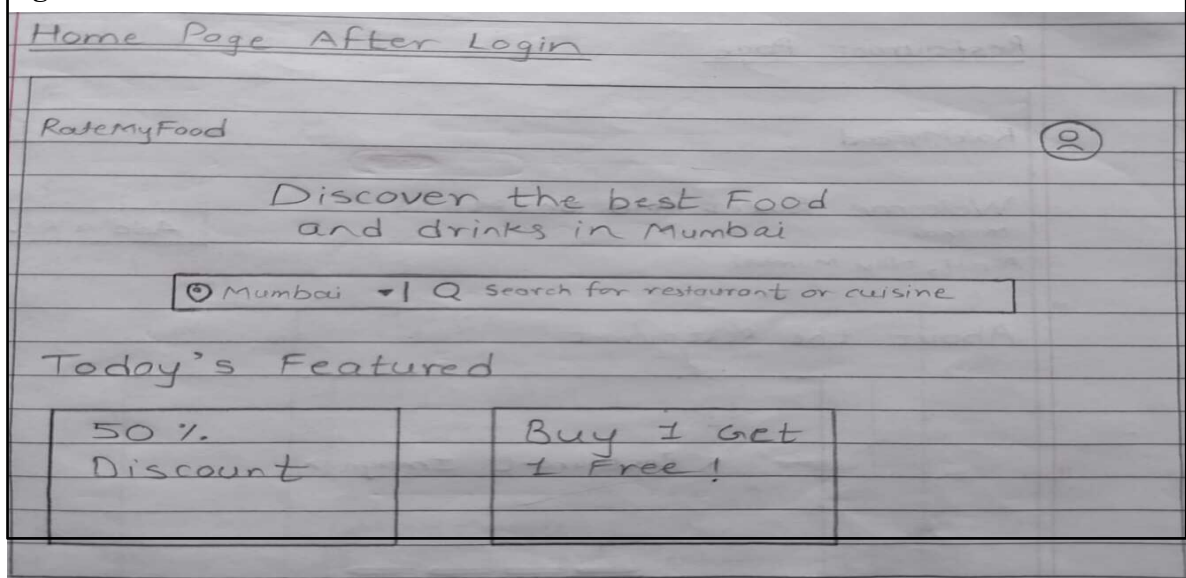 Home Page After Login
RateMyFood
Discover the best Food
and drinks in Mumbai
Mumbai | Search for restaurant or cuisine
Today's Featured
50 %
Discount
Buy 1 Get
1 Free!